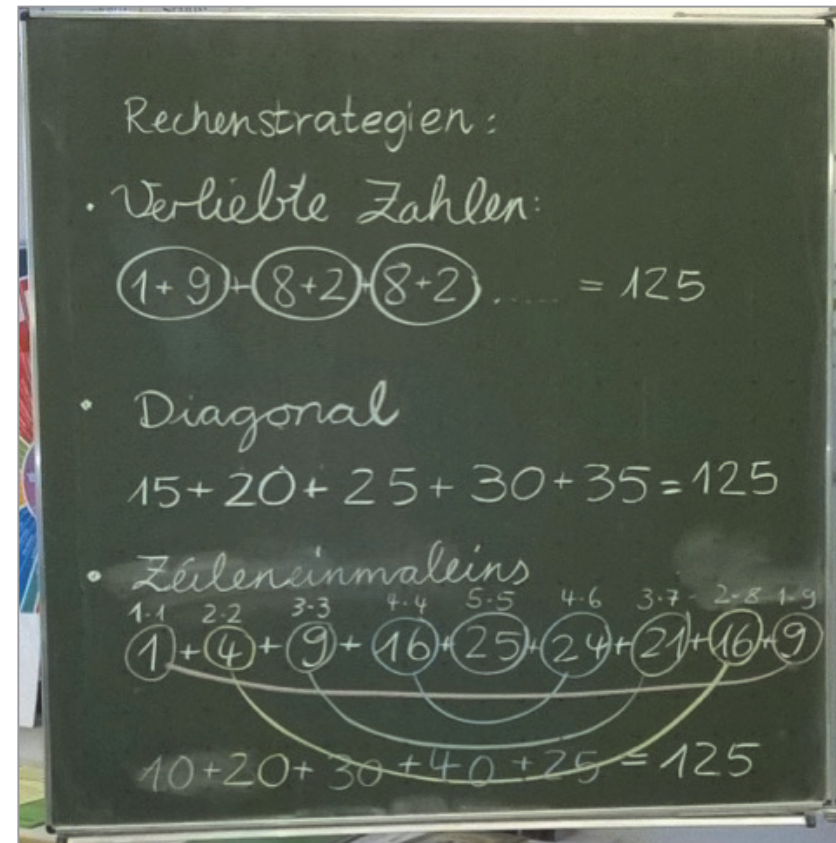 Rechenstrategien:
· Verliebte Zahlen:
1+9+8+2+8+2..... = 125
· Diagonal
15+20+25+30+35=125
· Zeileneinmaleins
1·1 2·2 3·3 4·4 5·5 4·6 3·7 2·8 1·9
1+4+9+16+25+24+21+16+9
10+20+30+40+25=125